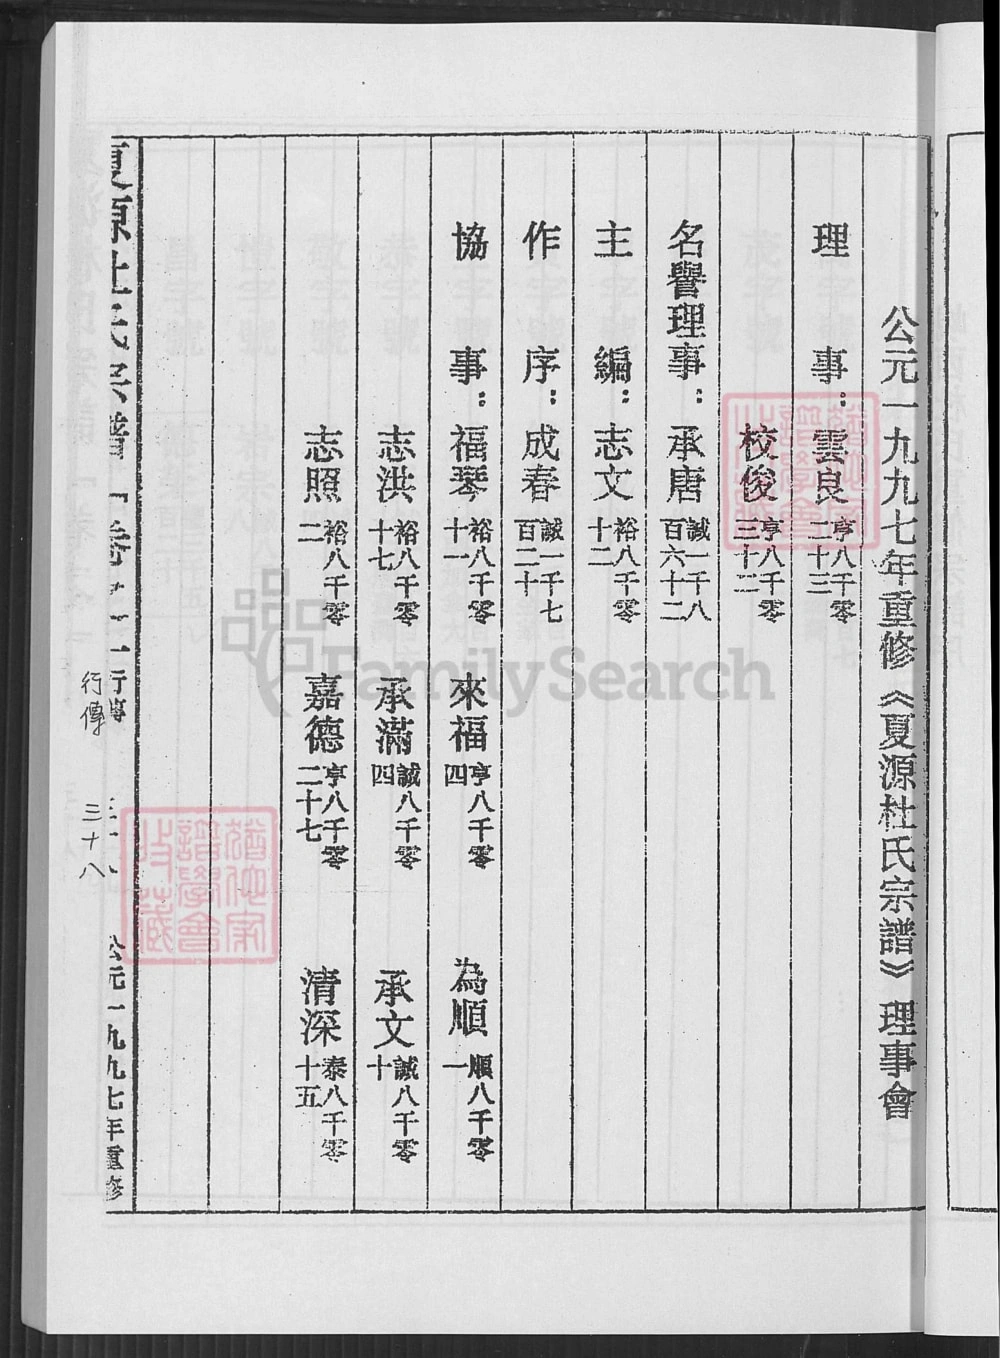 公元一九九七年重修《夏源杜氏宗譜》理事會
理事：雲良亨八千零二十三
校俊亨八千零三十二
名譽理事：承唐誠一千八百六十二
主編：志文裕八千零十二
作序：成春誠一千七百二十
協事：福琴裕八千零十一 來福亨八千零四 為順順八千零一
志洪裕八千零十七 承滿誠八千零四 承文誠八千零十
志照裕八千零二 嘉德亨八千零二十七 清深泰八千零十五
夏源杜氏宗譜 行傳 三十八 公元一九九七年重修
行傳 三十八
FamilySearch
譜學會
收藏